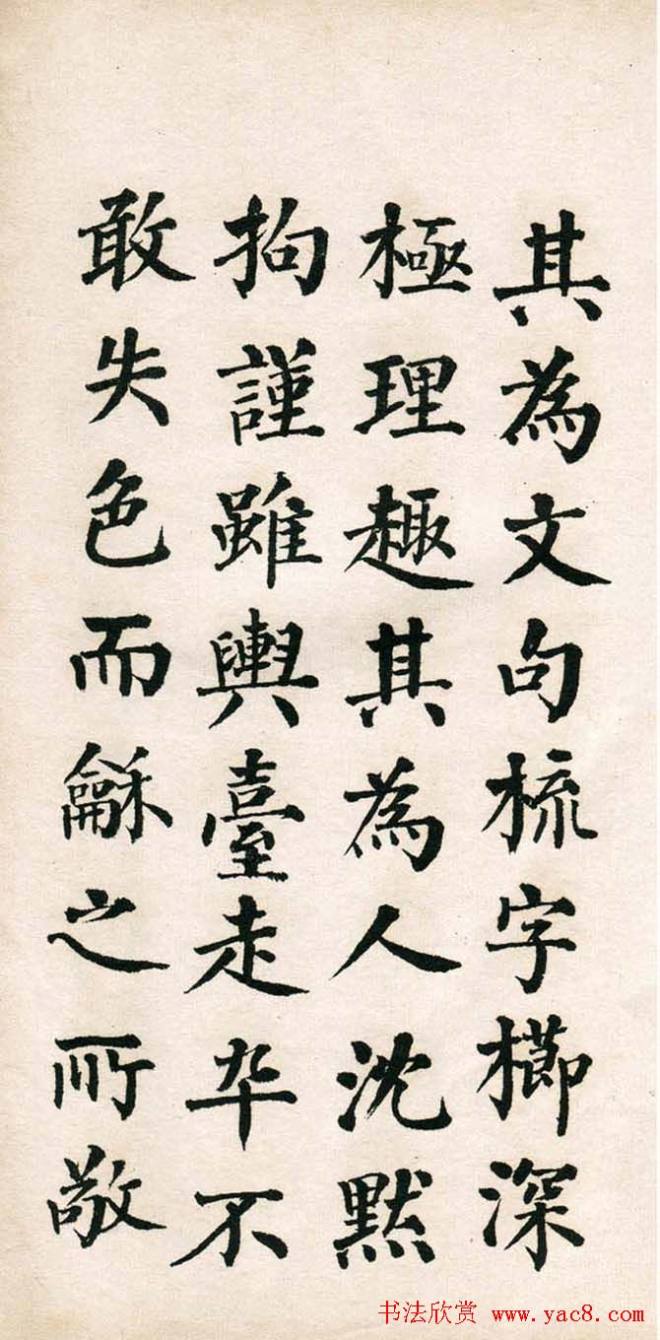 其為文句梳字櫛深
極理趣其為人沈默
拘謹雖輿臺走卒不
敢失色而龢之所敬
书法欣赏 www.yac8.com